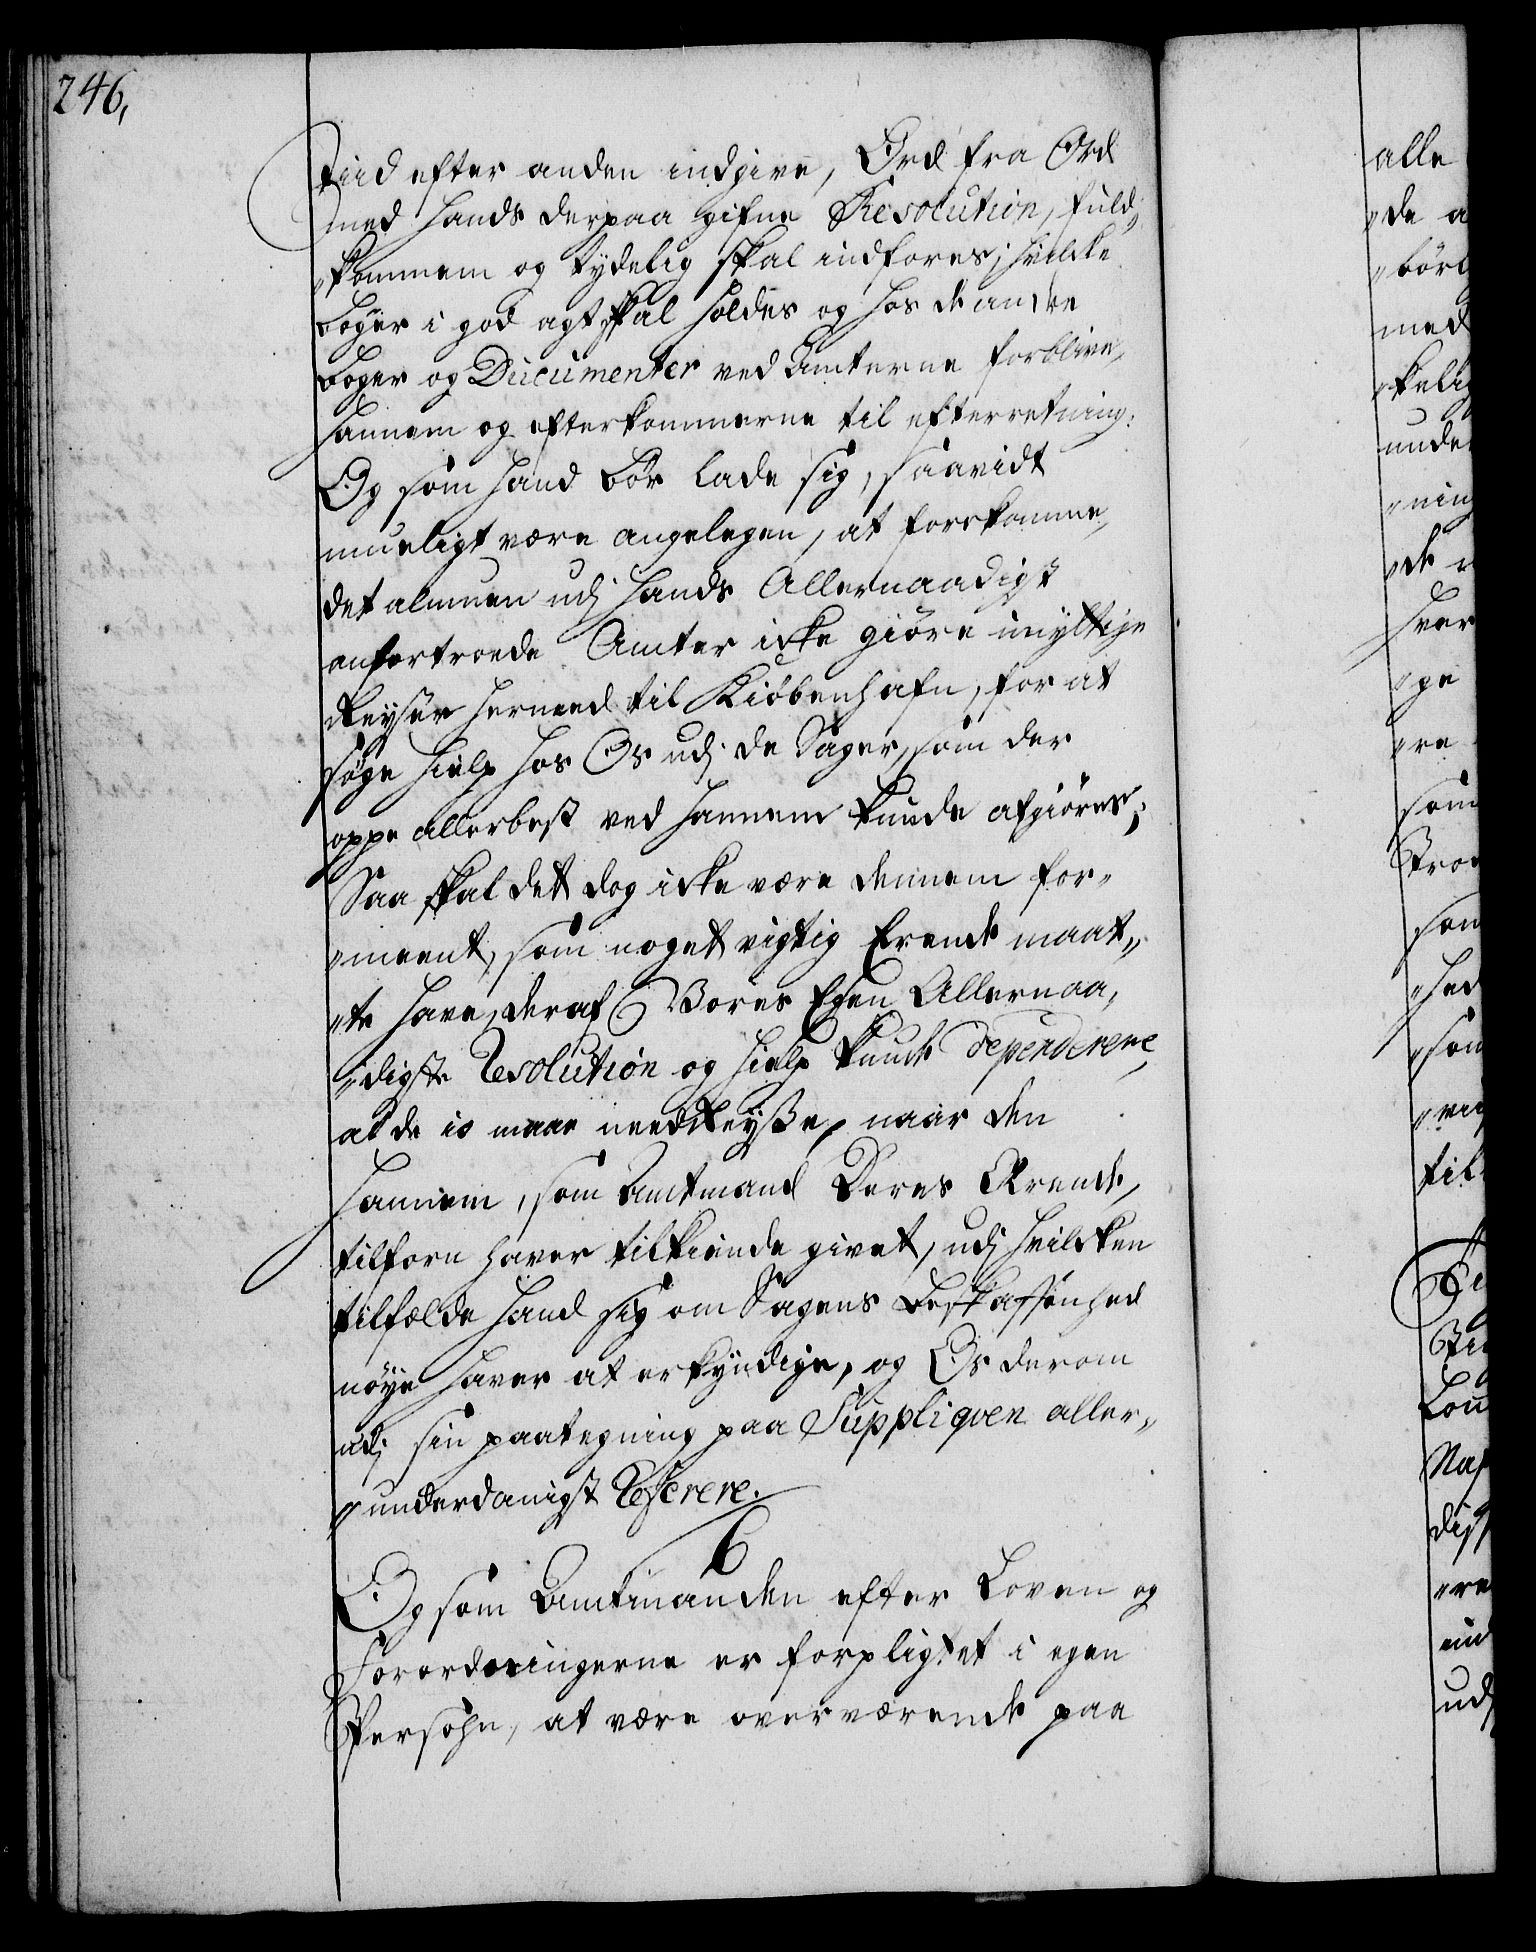 246,
tiid efter anden indgive, Ord fra Ord
med hands derpaa gifne Resolution, fuld„
„kommen og tydelig skal indføres; hvilcke
bøger i god agt skal holdes og hos de andre
bøger og Documenter ved Amterne forblive,
hannem og efterkommerne til efterretning.
Og som hand bør lade sig, saavidt
mueligt være angelegen, at forrekomme,
det almuen udj hands Allernaadigst
anfortroede Amter icke giøre unyttige
Reyser herneed til Kiøbenhafn, for at
søge hielp hos Os udj de Sager, som der
oppe allerbest ved hannem kunde afgiøres;
Saa skal det dog icke være dennem for„
„meent, som noget vigtig Erende maat„
„te have, deraf Vores Egen Allernaa„
„digste Resolution og hielp kunde dependerere,
at de io maae needreyße, naar den
hannem, som Amtmand Deres Ærende,
tilforn haver tilkiende givet, udj hvilcken
tilfælde hand sig om Sagens beskaffenhed
nøye haver at erkyndige, og Os derom
udj sin paategning paa Suppliqven aller„
„underdanigst Referere.
6
Og som Amtmanden efter Loven og
Forordningerne er forpligtet i egen
Persohn, at være overværende paa
alle
„de a
„børl
med
„kelig
unde
„ning
„de
hver
„ge
„re
som
Pro
som
„hed
„som
„vig
til
Lou
„re
ind
udj